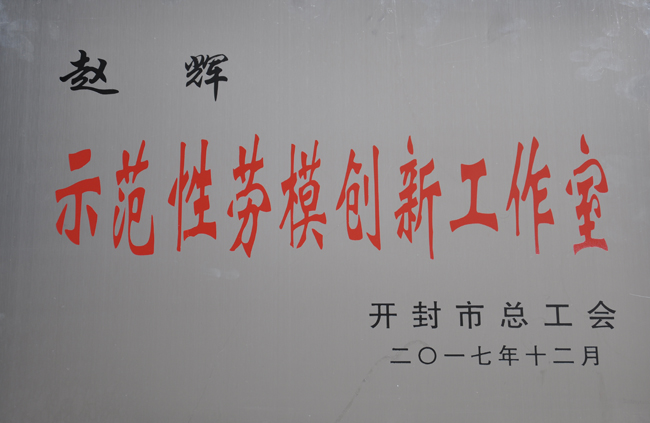 赵 辉
示范性劳模创新工作室
开封市总工会
二〇一七年十二月